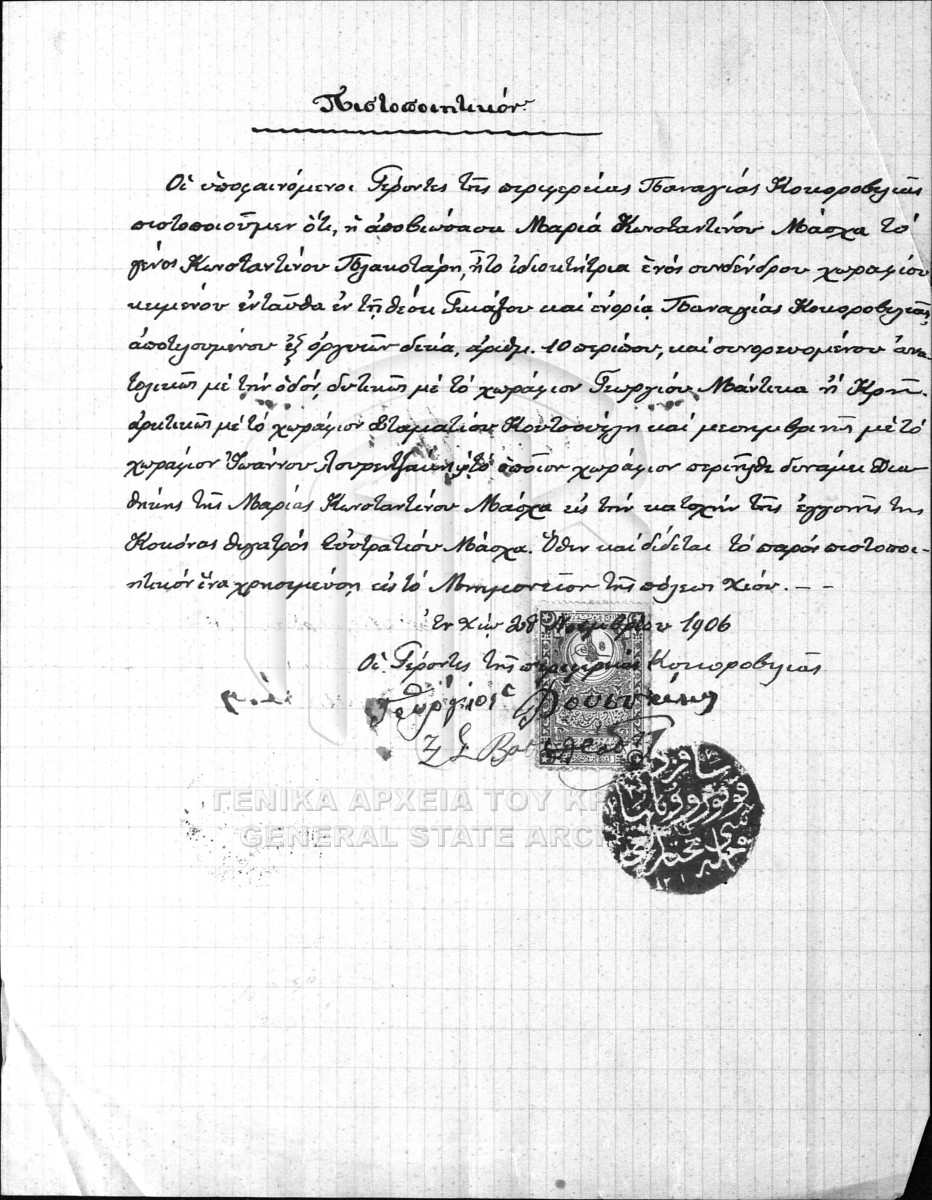 Πιστοποιητικόν.
Οἱ ὑποφαινόμενοι Γέροντες τῆς περιφερείας Παναγίας Κοκοροβιλιᾶς
πιστοποιοῦμεν ὅτι, ἡ ἀποβιώσασα Μαριά Κωνσταντίνου Μάσχα τὸ
γένος Κωνσταντίνου Πλακοτάρη, ἦτο ἰδιοκτήτρια ἑνός συνδένδρου χωραφίου
κειμένου ἐνταῦθα ἐν τῇ θέσει καὶ ἐνορίᾳ Παναγίας Κοκοροβιλιᾶς,
ἀποτελουμένου ἐξ ὀργυιῶν δέκα, ἀριθμ. 10 περίπου, καὶ συνορευομένου ἀνα-
τολικῶς μὲ τὴν ὁδόν, δυτικῶς μὲ τὸ χωράφιον Γεωργίου Μάντικα ἢ
ἀρκτικῶς μὲ τὸ χωράφιον Σταματίου Κουτσουδῆ καὶ μεσημβρινῶς μὲ τὸ
χωράφιον Ἰωάννου τὸ ὁποῖον χωράφιον περιῆλθε δυνάμει Δια-
θήκης τῆς Μαρίας Κωνσταντίνου Μάσχα εἰς τὴν κατοχὴν τῆς ἐγγονῆς της
Κοκόνας θυγατρός Εὐστρατίου Μάσχα. Ὅθεν καὶ δίδεται τὸ παρὸν πιστοποι-
ητικόν ἵνα χρησιμεύσῃ εἰς τὸ Μνημονεῖον τῆς πόλεως Χίου. — —
Ἐν Χίῳ Νοεμβρίου 1906
Οἱ Γέροντες τῆς περιφερείας Κοκοροβιλιᾶς
Γεώργιος
ΓΕΝΙΚΑ ΑΡΧΕΙΑ ΤΟΥ ΚΡ
GENERAL STATE ARCH